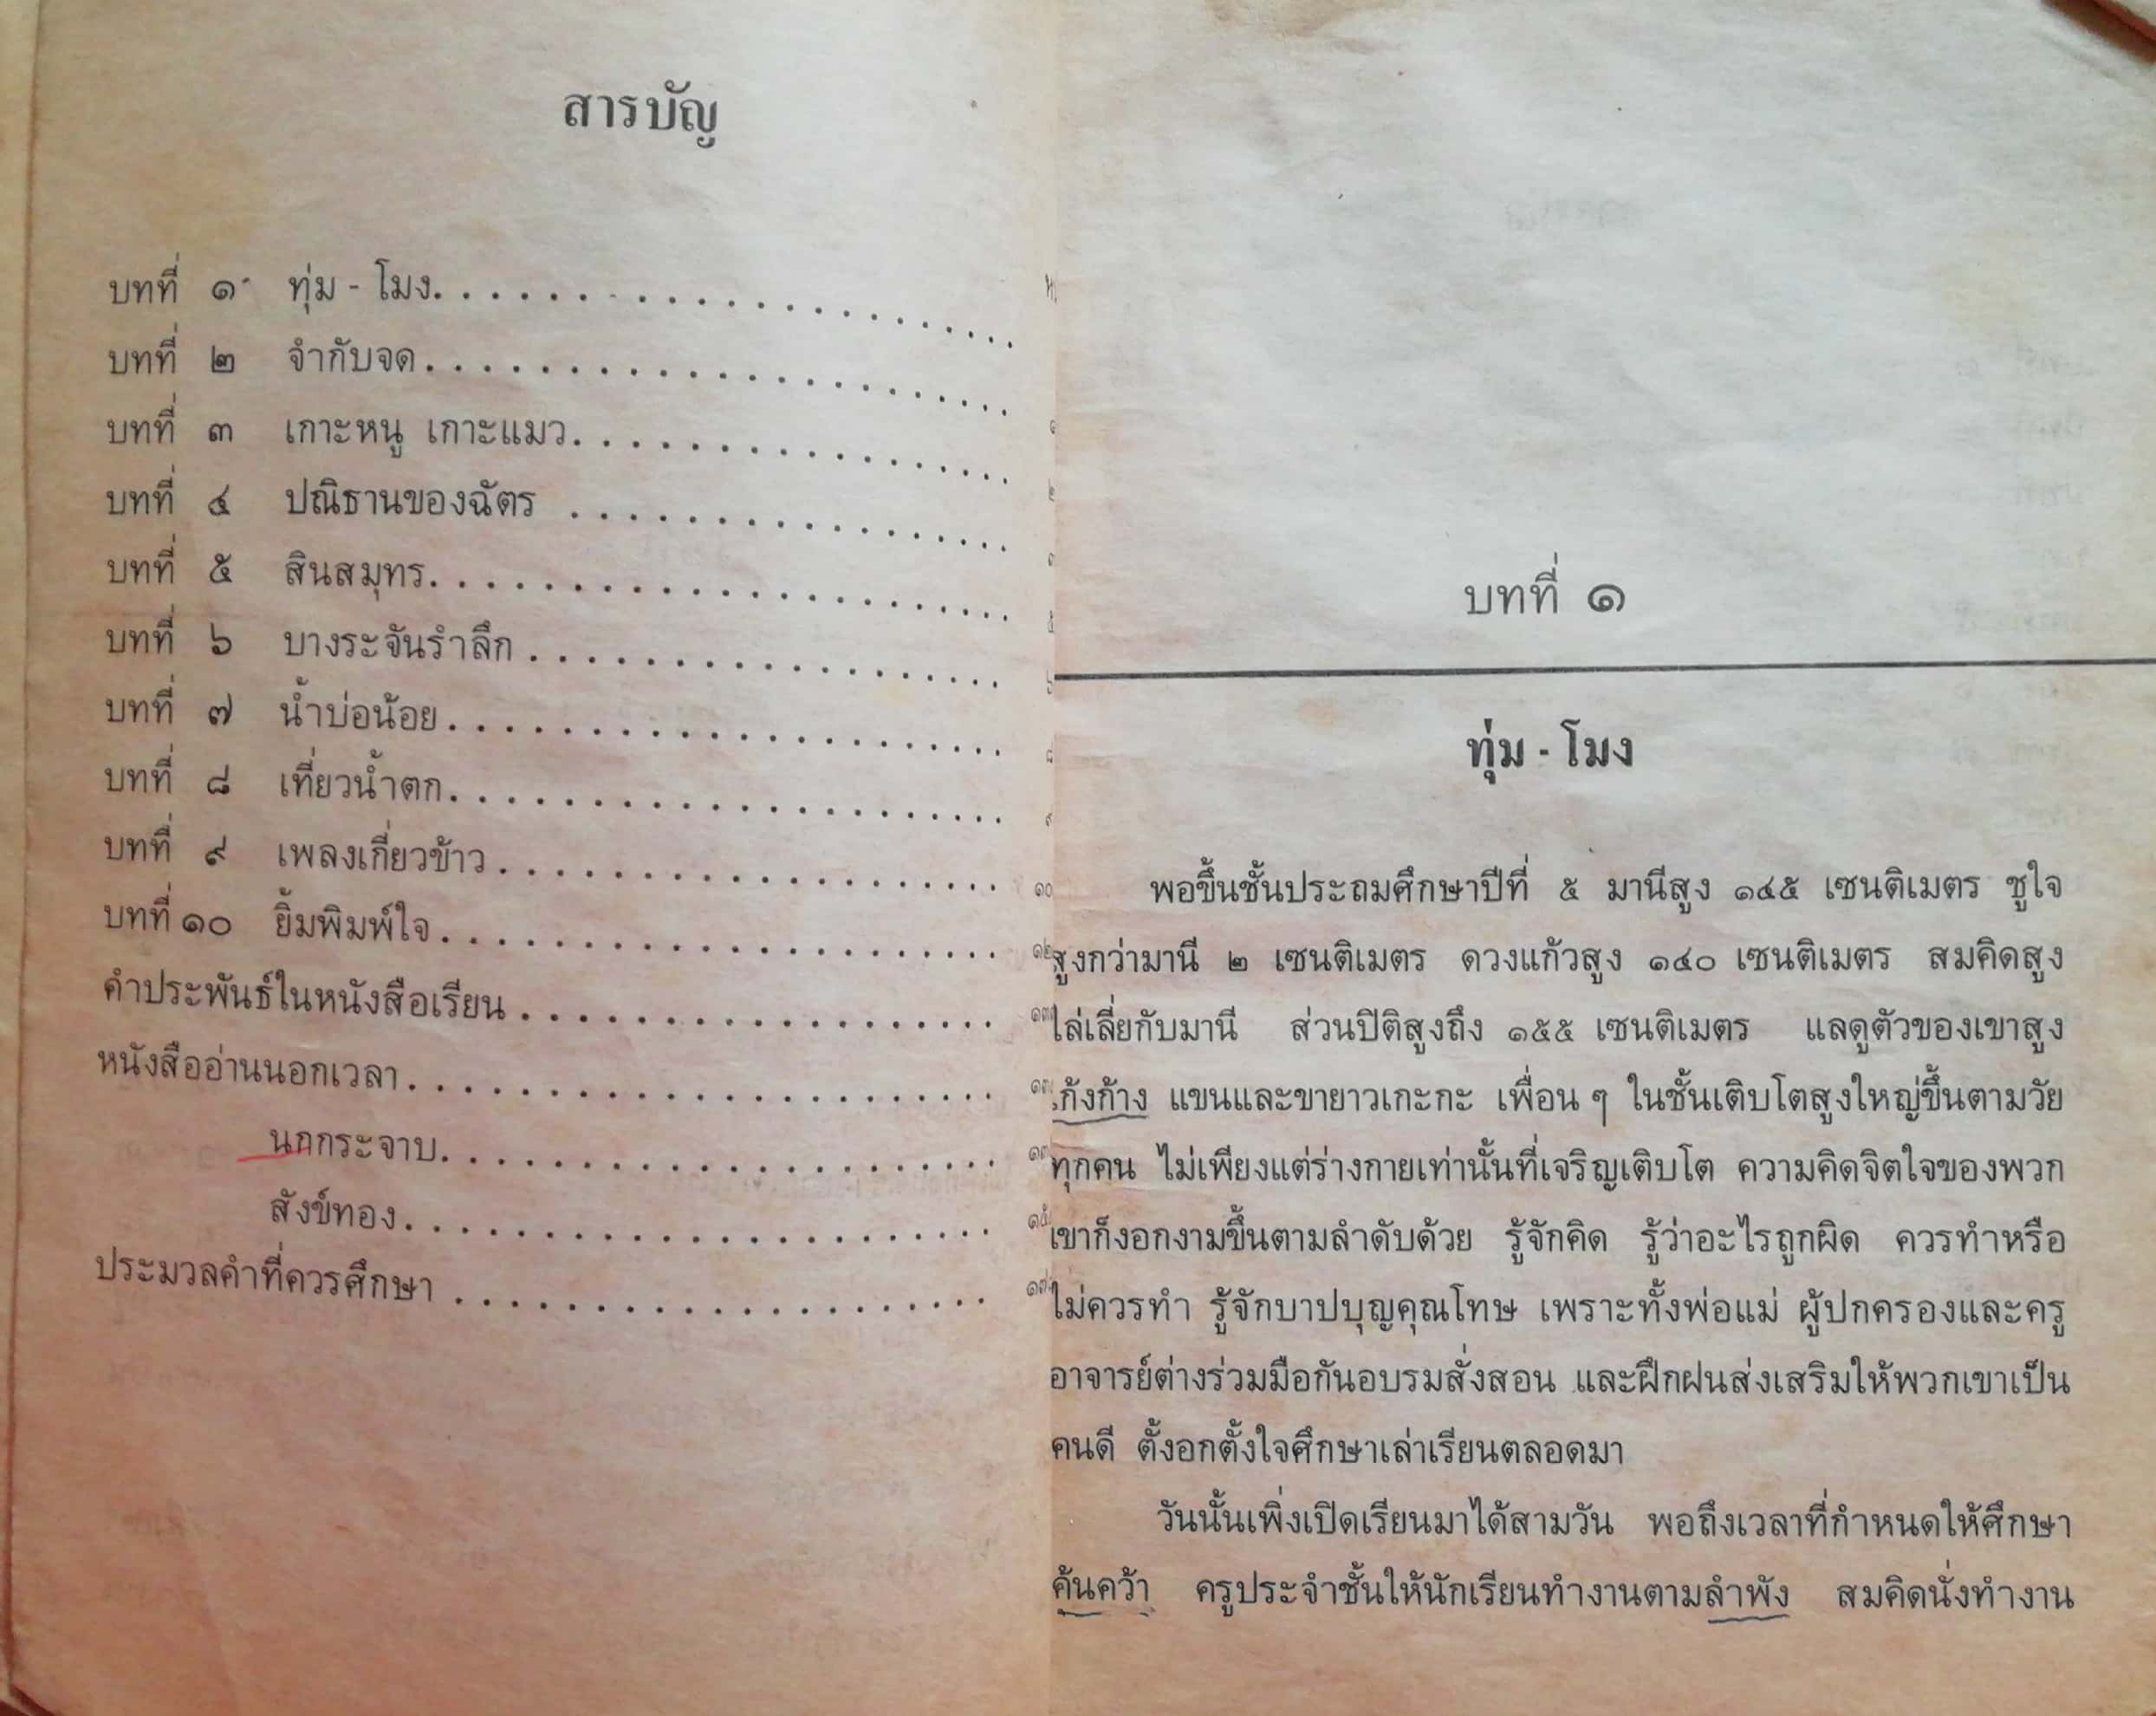 สารบัญ
บทที่ ๑ ทุ่ม - โมง. . . . . . . . . . . . . . . . . . . .
บทที่ ๒ จำกับจด. . . . . . . . . . . . . . . . . . . . .
บทที่ ๓ เกาะหนู เกาะแมว. . . . . . . . . . . . . . . .
บทที่ ๔ ปณิธานของฉัตร . . . . . . . . . . . . . . . .
บทที่ ๕ สินสมุทร. . . . . . . . . . . . . . . . . . . . .
บทที่ ๖ บางระจันรำลึก . . . . . . . . . . . . . . . . .
บทที่ ๗ น้ำบ่อน้อย. . . . . . . . . . . . . . . . . . . .
บทที่ ๘ เที่ยวน้ำตก. . . . . . . . . . . . . . . . . . . .
บทที่ ๙ เพลงเกี่ยวข้าว . . . . . . . . . . . . . . . . . .
บทที่ ๑๐ ยิ้มพิมพ์ใจ. . . . . . . . . . . . . . . . . . . .
คำประพันธ์ในหนังสือเรียน . . . . . . . . . . . . . . . . .
หนังสืออ่านนอกเวลา. . . . . . . . . . . . . . . . . . . . .
นกกระจาบ. . . . . . . . . . . . . . . . . . . .
สังข์ทอง. . . . . . . . . . . . . . . . . . . . .
ประมวลคำที่ควรศึกษา . . . . . . . . . . . . . . . . . . .
บทที่ ๑
ทุ่ม - โมง
พอขึ้นชั้นประถมศึกษาปีที่ ๕ มานีสูง ๑๔๕ เซนติเมตร ชูใจ
สูงกว่ามานี ๒ เซนติเมตร ดวงแก้วสูง ๑๔๐ เซนติเมตร สมคิดสูง
ไล่เลี่ยกับมานี ส่วนปิติสูงถึง ๑๕๕ เซนติเมตร แลดูตัวของเขาสูง
เก้งก้าง แขนและขายาวเกะกะ เพื่อน ๆ ในชั้นเติบโตสูงใหญ่ขึ้นตามวัย
ทุกคน ไม่เพียงแต่ร่างกายเท่านั้นที่เจริญเติบโต ความคิดจิตใจของพวก
เขาก็งอกงามขึ้นตามลำดับด้วย รู้จักคิด รู้ว่าอะไรถูกผิด ควรทำหรือ
ไม่ควรทำ รู้จักบาปบุญคุณโทษ เพราะทั้งพ่อแม่ ผู้ปกครองและครู
อาจารย์ต่างร่วมมือกันอบรมสั่งสอน และฝึกฝนส่งเสริมให้พวกเขาเป็น
คนดี ตั้งอกตั้งใจศึกษาเล่าเรียนตลอดมา
วันนั้นเพิ่งเปิดเรียนมาได้สามวัน พอถึงเวลาที่กำหนดให้ศึกษา
ค้นคว้า ครูประจำชั้นให้นักเรียนทำงานตามลำพัง สมคิดนั่งทำงาน